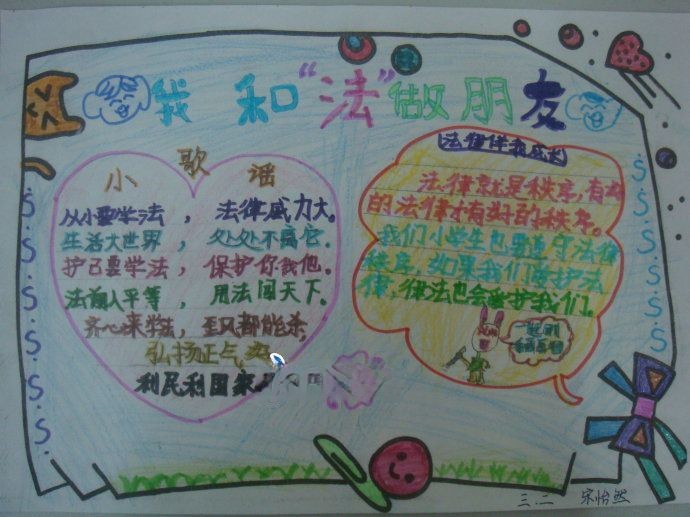 我和“法”做朋友
小歌谣
从小要学法，法律威力大。
生活大世界，处处不离它。
护己要学法，保护你我他。
法前人平等，用法闯天下。
齐心来学法，歪风都能杀，
弘扬正气
利民利国家
法律伴我成长
法律就是秩序，有好
的法律才有好的秩序。
我们小学生也要遵守法律
秩序，如果我们爱护法
律，律法也会爱护我们。
三.二 宋怡然